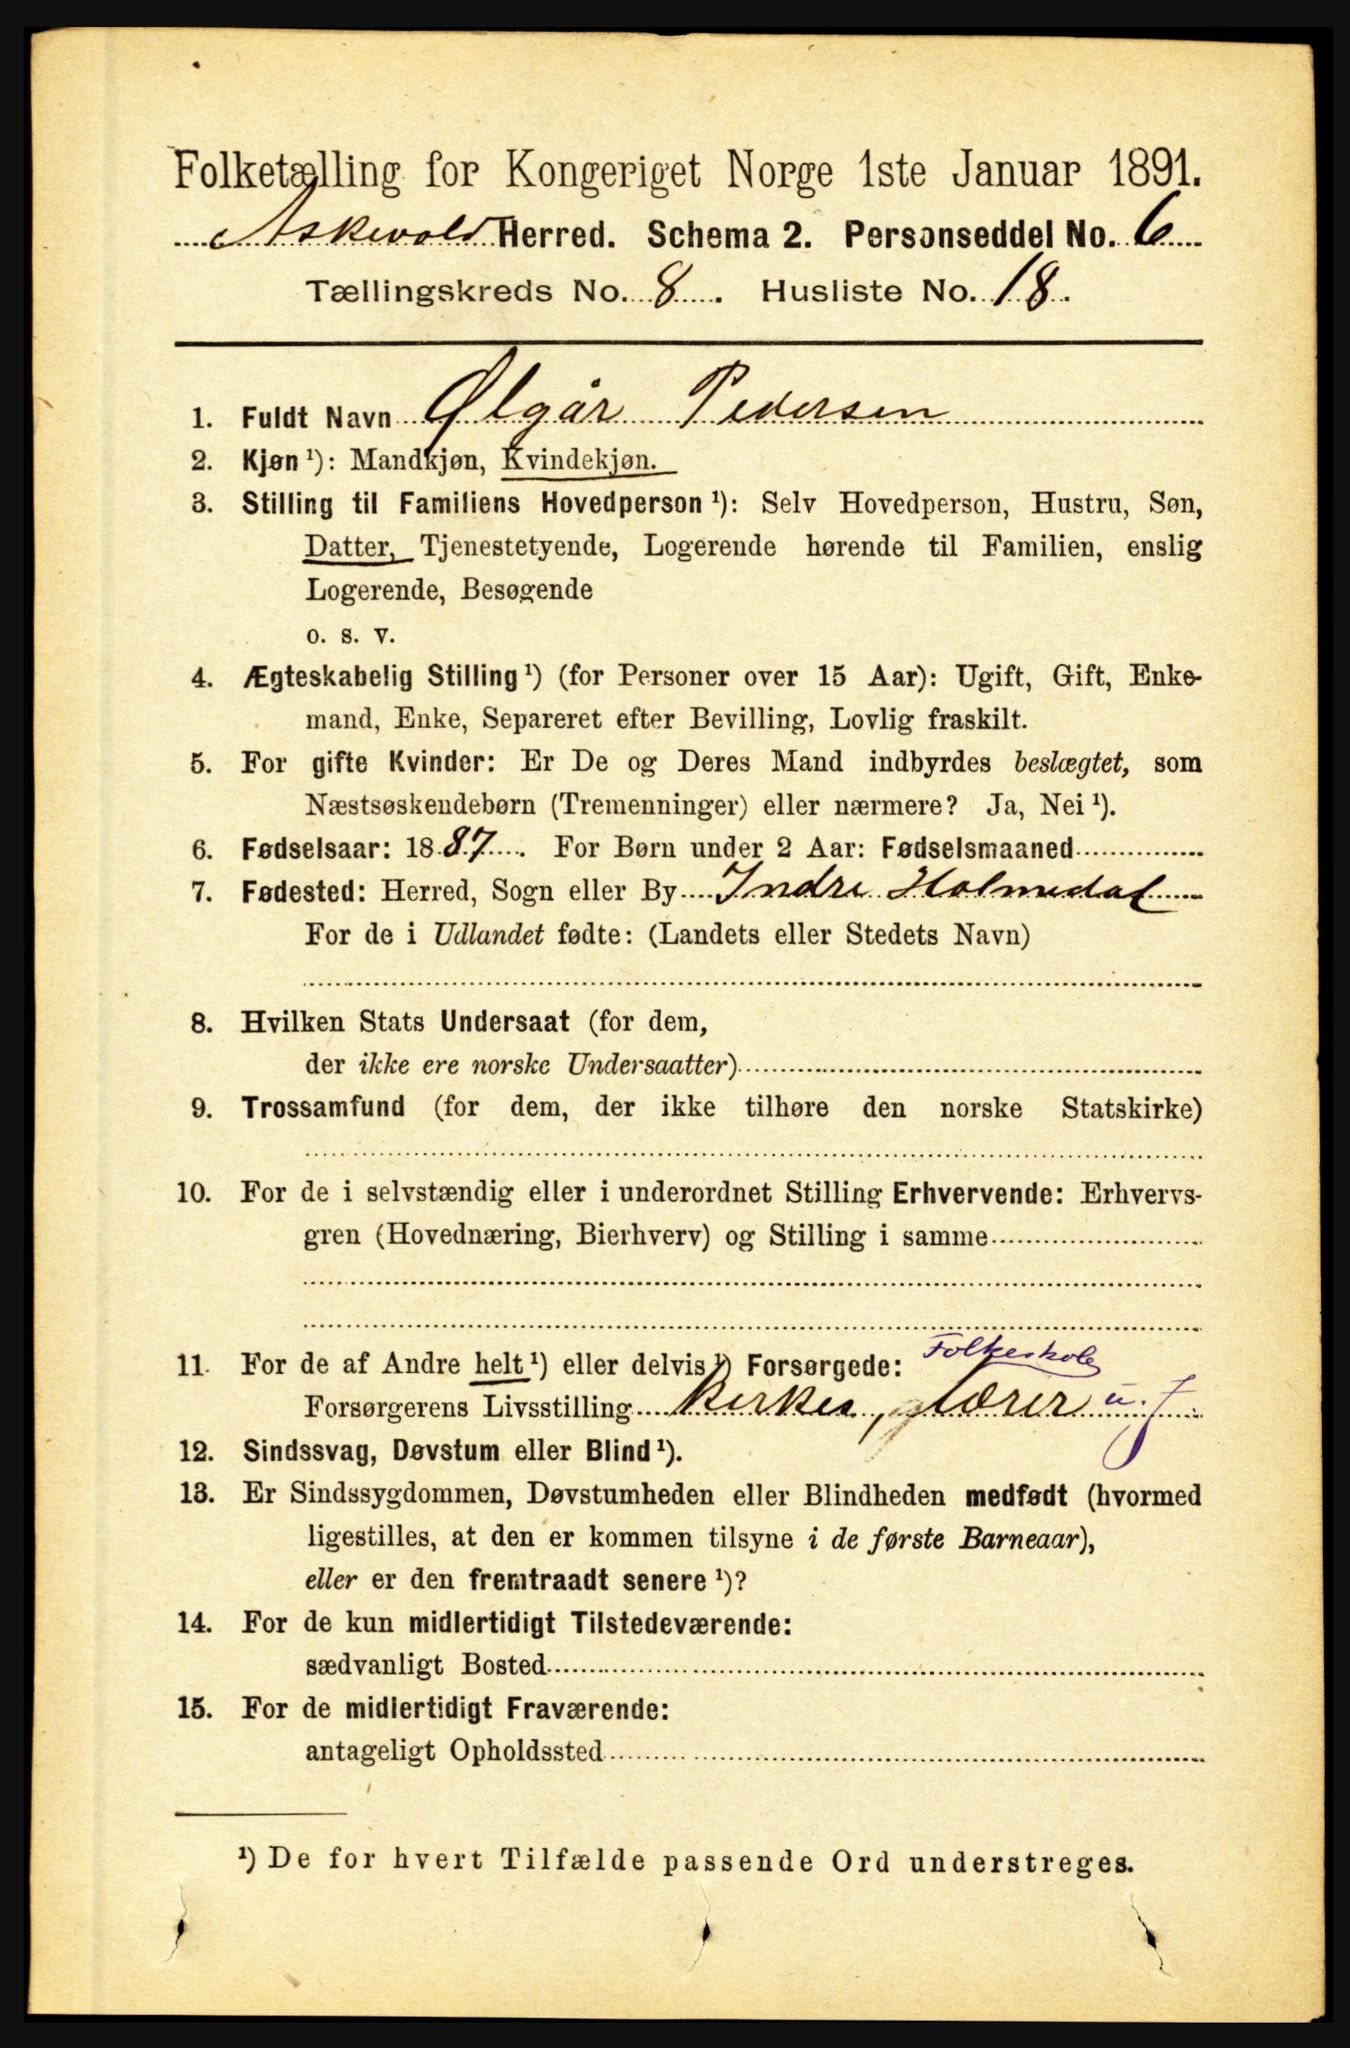 Folketælling for Kongeriget Norge 1ste Januar 1891.
Askevold Herred. Schema 2. Personseddel No. 6
Tællingskreds No. 8. Husliste No. 18.
1. Fuldt Navn Ølgår Pedersen
2. Kjøn ¹): Mandkjøn, Kvindekjøn.
3. Stilling til Familiens Hovedperson ¹): Selv Hovedperson, Hustru, Søn,
Datter, Tjenestetyende, Logerende hørende til Familien, enslig
Logerende, Besøgende
o. s. v.
4. Ægteskabelig Stilling ¹) (for Personer over 15 Aar): Ugift, Gift, Enke-
mand, Enke, Separeret efter Bevilling, Lovlig fraskilt.
5. For gifte Kvinder: Er De og Deres Mand indbyrdes beslægtet, som
Næstsøskendebørn (Tremenninger) eller nærmere? Ja, Nei ¹).
6. Fødselsaar: 1887. For Børn under 2 Aar: Fødselsmaaned
7. Fødested: Herred, Sogn eller By Indre Holmedal
For de i Udlandet fødte: (Landets eller Stedets Navn)
8. Hvilken Stats Undersaat (for dem,
der ikke ere norske Undersaatter)
9. Trossamfund (for dem, der ikke tilhøre den norske Statskirke)
10. For de i selvstændig eller i underordnet Stilling Erhvervende: Erhvervs-
gren (Hovednæring, Bierhverv) og Stilling i samme
Folkeskole
11. For de af Andre helt ¹) eller delvis ¹) Forsørgede:
Forsørgerens Livsstilling Kirkes, glærer u. f.
12. Sindssvag, Døvstum eller Blind ¹).
13. Er Sindssygdommen, Døvstumheden eller Blindheden medfødt (hvormed
ligestilles, at den er kommen tilsyne i de første Barneaar),
eller er den fremtraadt senere ¹)?
14. For de kun midlertidigt Tilstedeværende:
sædvanligt Bosted
15. For de midlertidigt Fraværende:
antageligt Opholdssted
¹) De for hvert Tilfælde passende Ord understreges.